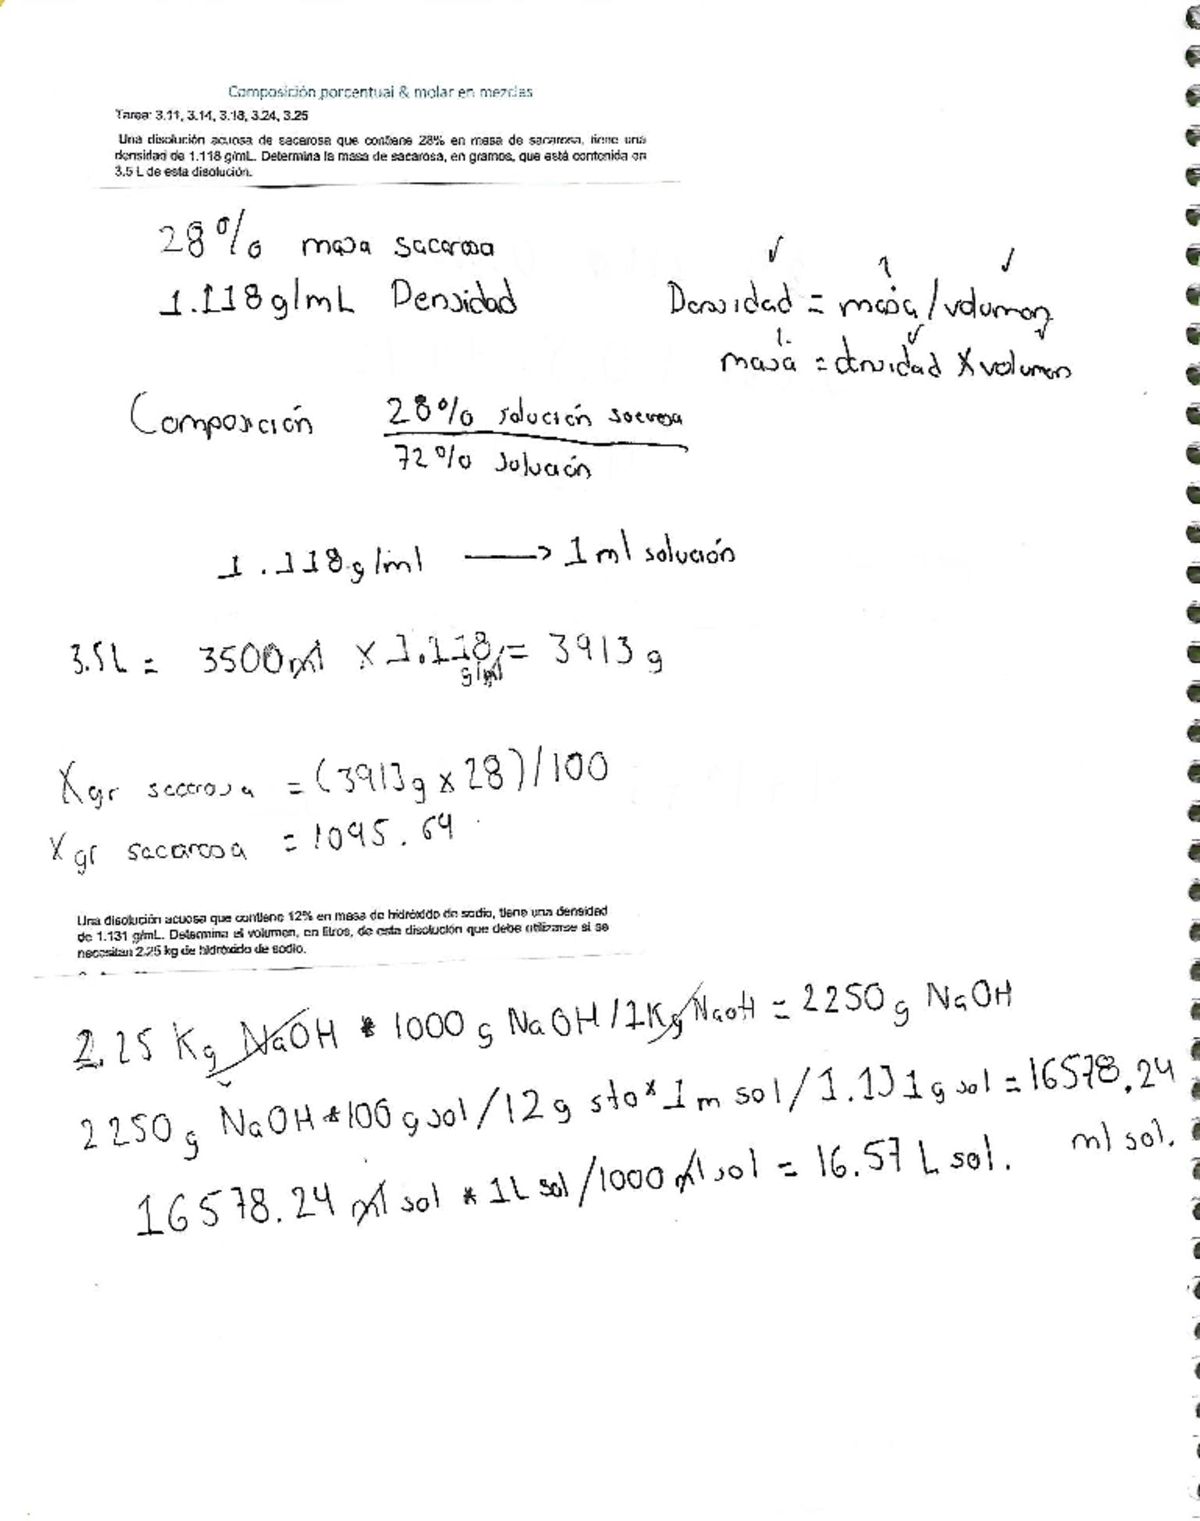 Composición porcentual & molar en mezclas
Tarea: 3.11, 3.14, 3.18, 3.24, 3.25
Una disolución acuosa de sacarosa que contiene 28% en masa de sacarosa, tiene una
densidad de 1.118 g/mL. Determina la masa de sacarosa, en gramos, que está contenida en
3.5 L de esta disolución.
28% masa sacarosa
1.118 g/mL Densidad
Densidad = masa/volumen
masa = densidad x volumen
Composición 28% solución sacarosa
72% solución
1.118 g/ml → 1 ml solución
3.5L = 3500 ml x 1.118 g/ml = 3913 g
Xgr sacarosa = (3913g x 28)/100
Xgr sacarosa = 1095.64
Una disolución acuosa que contiene 12% en masa de hidróxido de sodio, tiene una densidad
de 1.131 g/mL. Determina el volumen, en litros, de esta disolución que debe utilizarse si se
necesitan 2.25 kg de hidróxido de sodio.
2.25 Kg NaOH * 1000 g NaOH / 1Kg NaOH = 2250 g NaOH
2250 g NaOH * 100 g sol / 12 g sto * 1 m sol / 1.131 g sol = 16578.24
ml sol.
16578.24 ml sol * 1L sol / 1000 ml sol = 16.57 L sol.